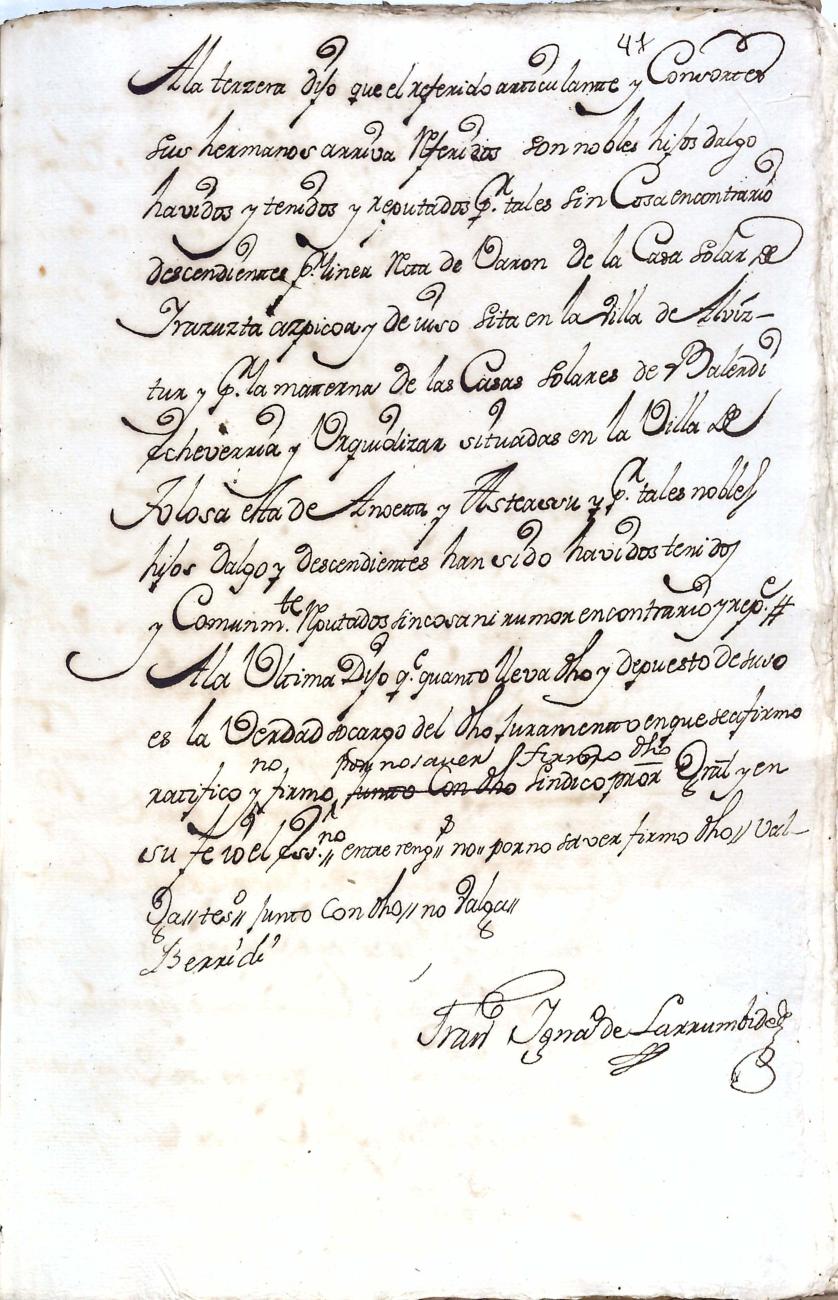 47
A la terzera dijo que el referido articulante y Consortes
sus hermanos arriva Referidos son nobles hijos dalgo
havidos y tenidos y reputados pr. tales sin Cosa en contrario
descendientes pr. linea Recta de Varon de la Casa solar de
Yrazuzta azpicoa y de iuso sita en la Villa de Alviz-
tur y pr. la materna de las Casas solares de Balerdi
Echeverria y Urquidizar situadas en la Villa de
Tolosa esta de Anoeta y Asteasu y pr. tales nobles
hijos dalgo y descendientes han sido havidos tenidos
y Comunmte. Reputados sin cosa ni rumor en contrario y repe.
A la Ultima Dijo qe. quanto lleva dho y depuesto de suso
es la Verdad so cargo del dho Juramento en que se afirmo
no por no saver firmo dho
ratifico y firmo junto Con dho Sindico pror Gral y en
su fe io el Essno. // entre reng // no // por no saver firmo dho // Val-
ga // tesdo // junto con dho // no Valga //
Berridi
Frano Ignao de Larrumbide